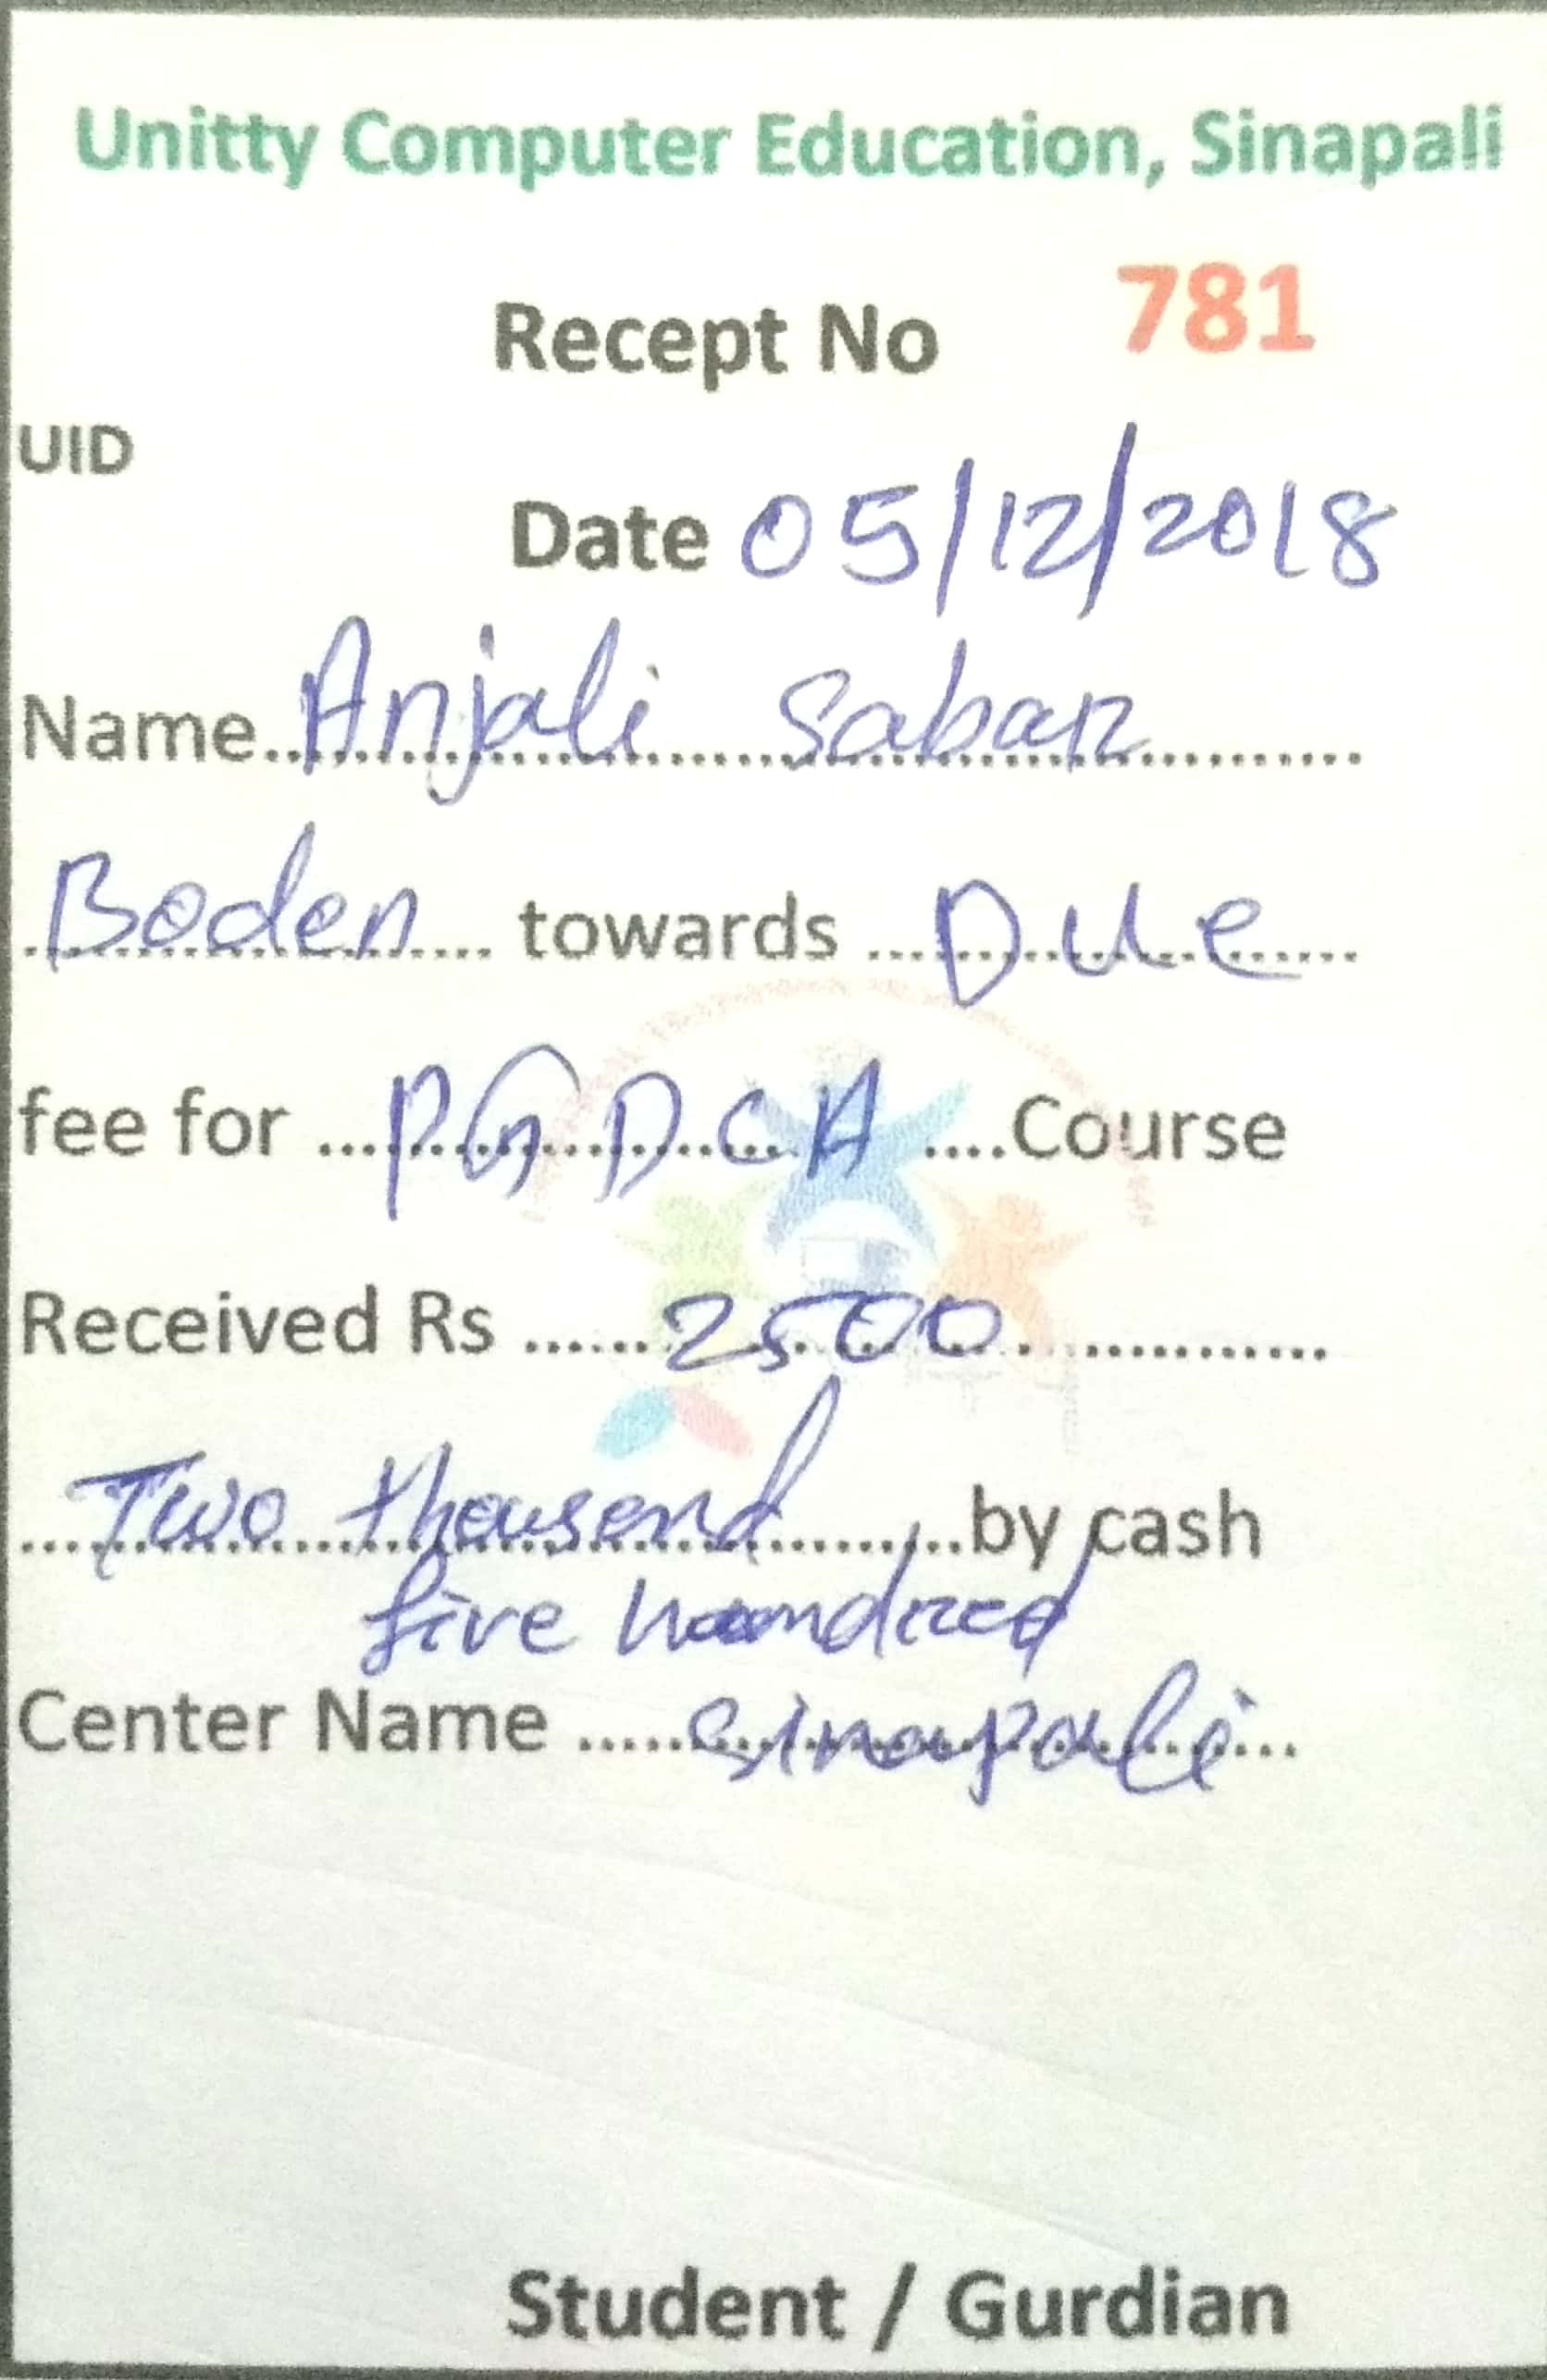 Unitty Computer Education, Sinapali
Recept No 781
UID
Date 05/12/2018
Name Anjali Sabar
Boden towards Due
fee for PGDCA Course
Received Rs 2500
Two thousend by cash
five hundred
Center Name Sinapali
Student / Gurdian